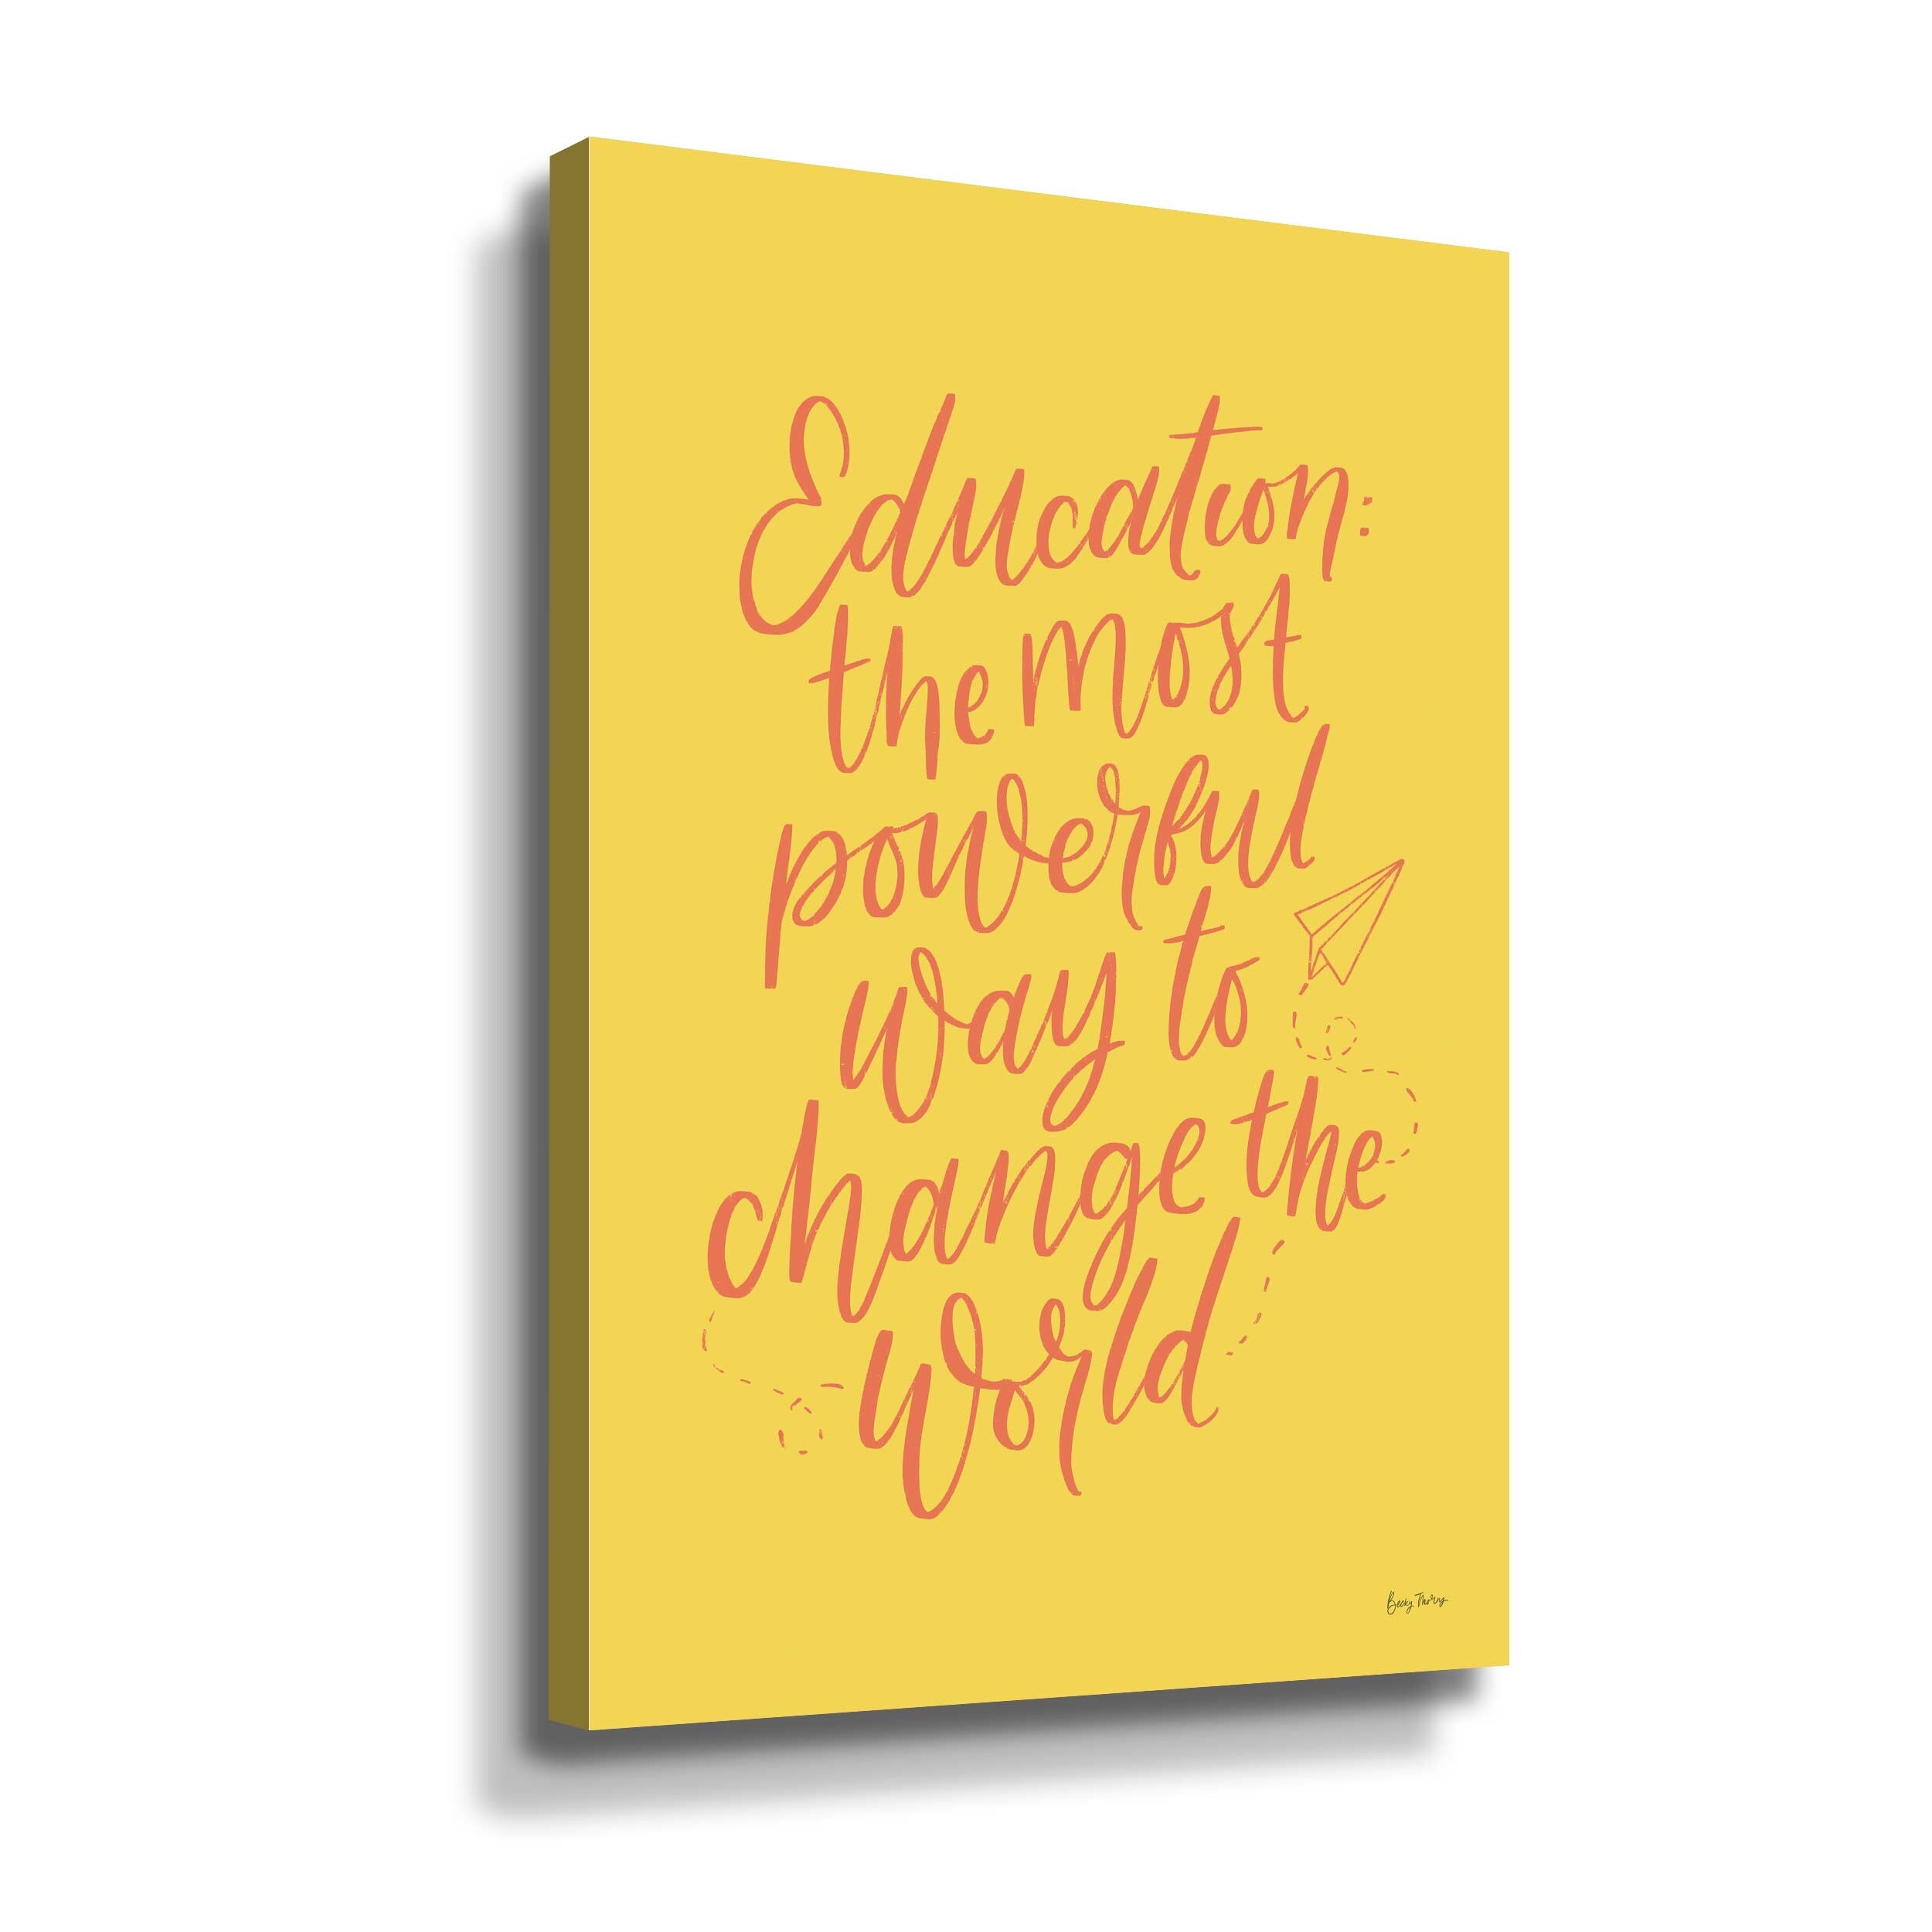 Education:
the most
powerful
way to
change the
world
Becky Thorns